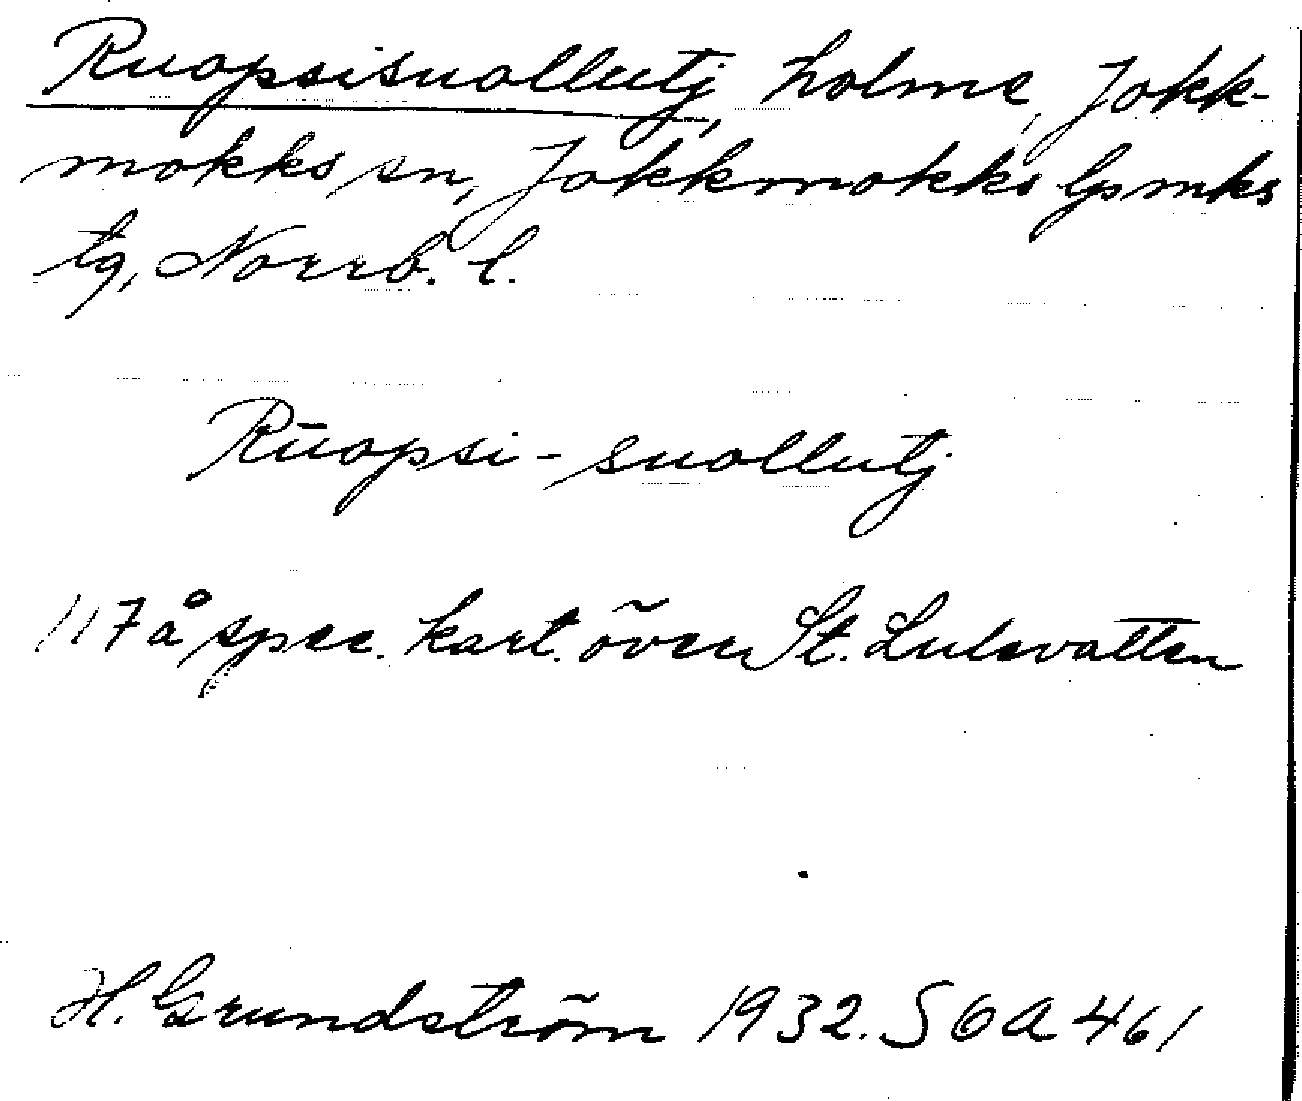 Ruopsisuollutj, holme, Jokk-
mokks sn, Jokkmokks lpmks
tg, Norrb. l.
Rūopsi-suollutj
117 å spec. kart. över St. Lulevatten
H. Grundström 1932. SOA 461